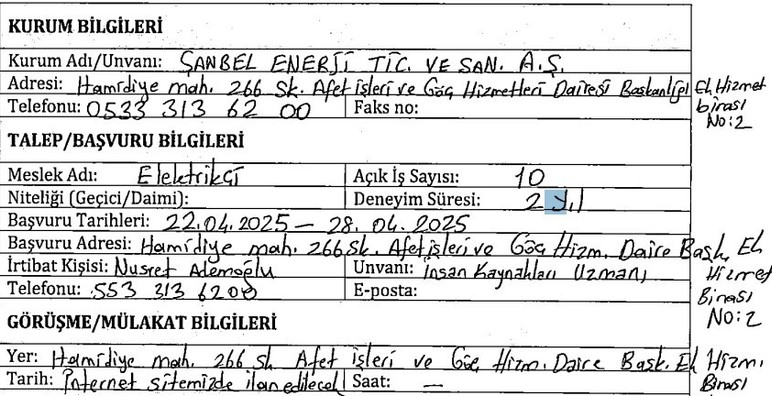 KURUM BİLGİLERİ
Kurum Adı/Unvanı: ŞANBEL ENERJİ TİC. VE SAN. A.Ş.
Adresi: Hamidiye mah. 266 Sk. Afet işleri ve Göç Hizmetleri Dairesi Başkanlığı Ek Hizmet
binası
No:2
Telefonu: 0533 313 62 00 Faks no:
TALEP/BAŞVURU BİLGİLERİ
Meslek Adı: Elektrikçi Açık İş Sayısı: 10
Niteliği (Geçici/Daimi): Deneyim Süresi: 2 yıl
Başvuru Tarihleri: 22.04.2025 – 28.04.2025
Başvuru Adresi: Hamidiye mah. 266 Sk. Afet işleri ve Göç Hizm. Daire Başk. Ek
Hizmet
Binası
No:2
İrtibat Kişisi: Nusret Ademoğlu Unvanı: insan Kaynakları Uzmanı
Telefonu: 553 313 6200 E-posta:
GÖRÜŞME/MÜLAKAT BİLGİLERİ
Yer: Hamidiye mah. 266 sk Afet işleri ve Göç Hizm. Daire Başk. Ek Hizm.
Binası
Tarih: İnternet sitemizde ilan edilecek Saat: —